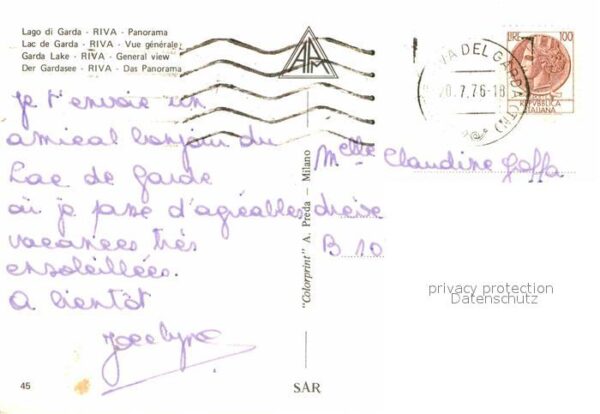 Lago di Garda - RIVA - Panorama
Lac de Garda - RIVA - Vue générale
Garda Lake - RIVA - General view
Der Gardasee - RIVA - Das Panorama
Je t'envoie un
amical bonjour du
Lac de Garde
où je passe d'agréables
vacances très
ensoleillées.
A bientôt
Jocelyne
45
"Colorprint" A. Preda - Milano
SAR
LIRE 100
REPVBBLICA
ITALIANA
RIVA DEL GARDA (TN)
20.7.76-18
Melle Claudine Goffa
B 10
privacy protection
Datenschutz